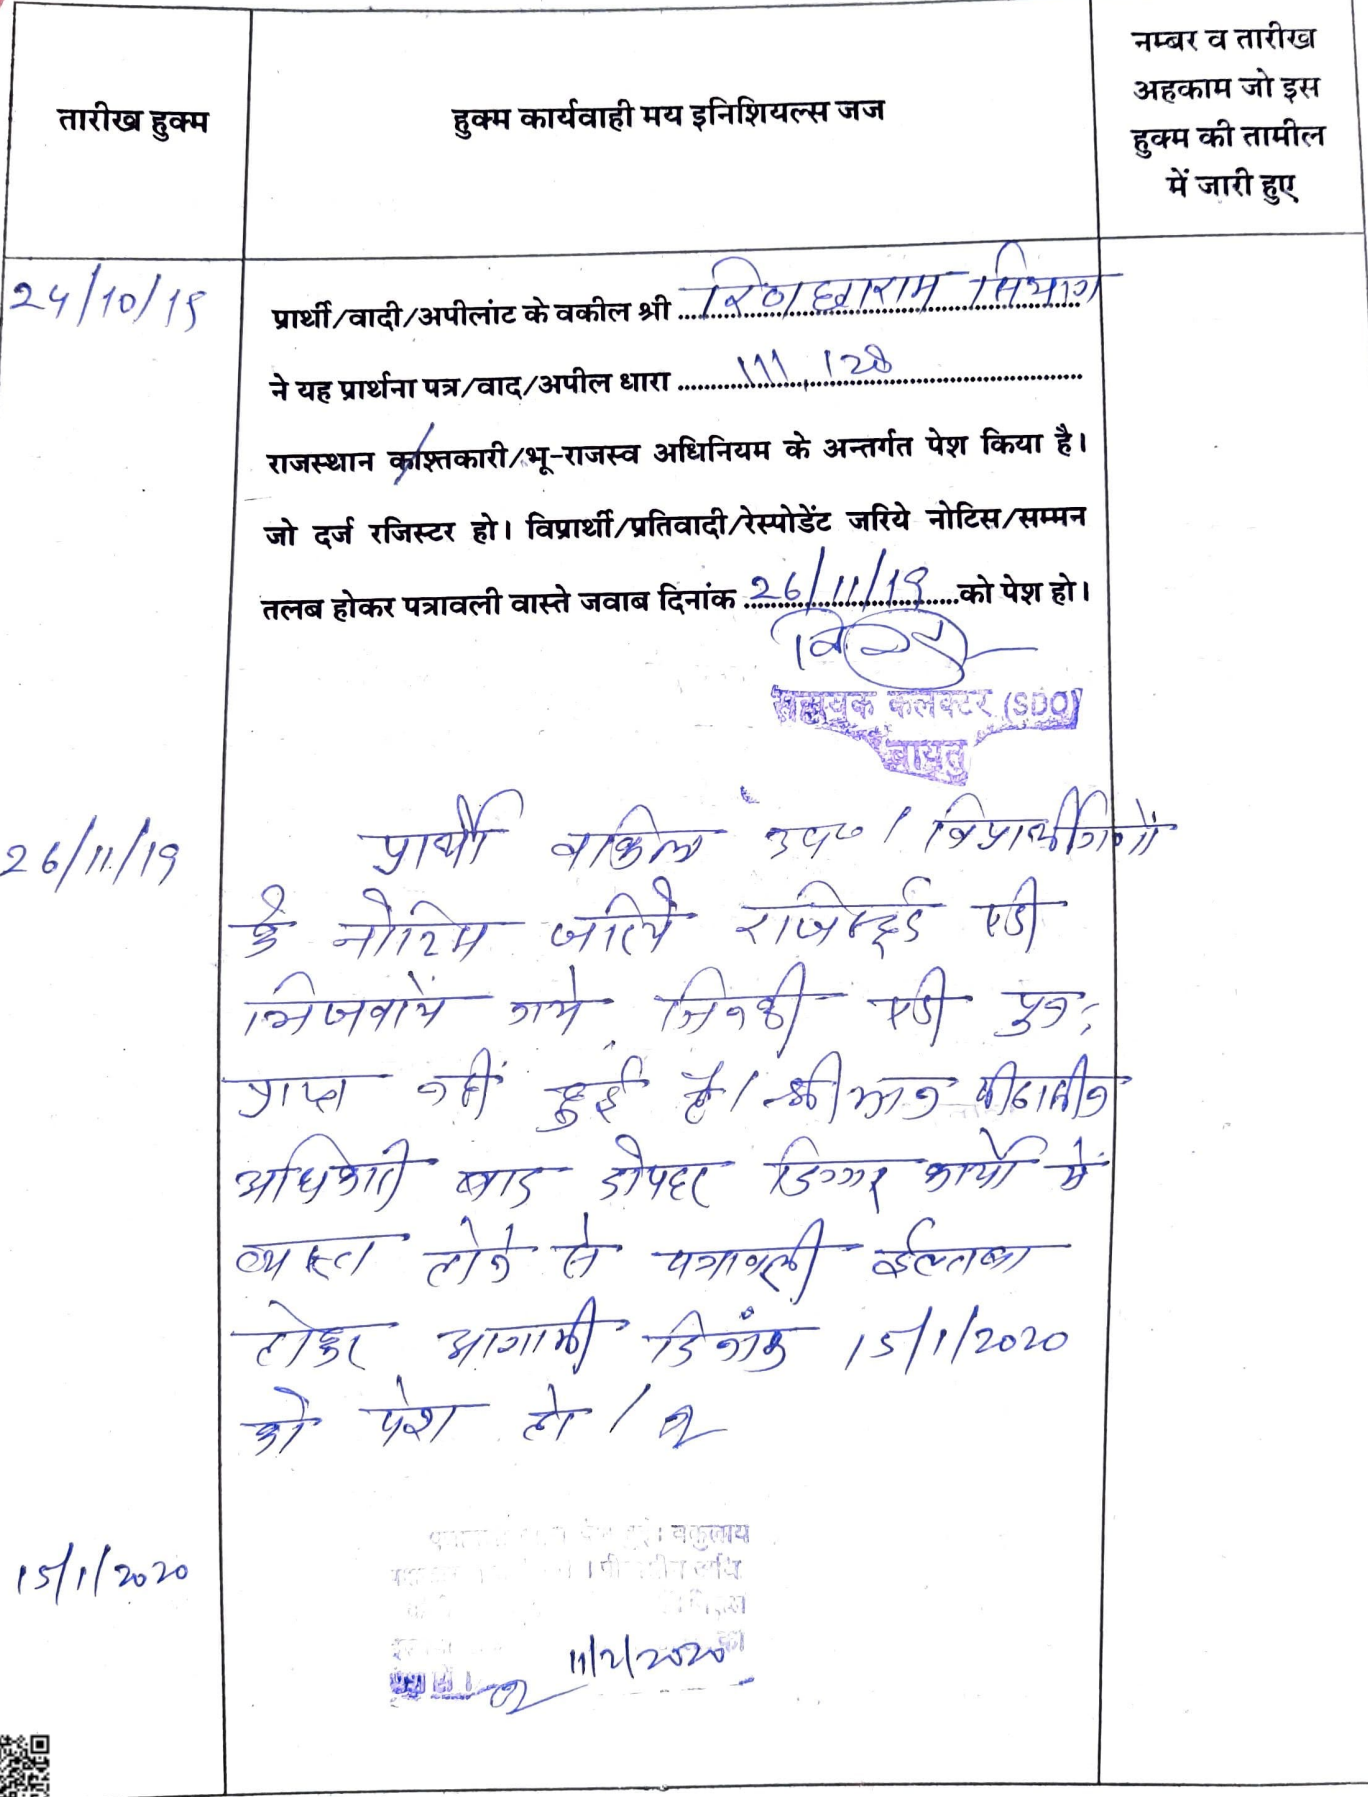 तारीख हुक्म
हुक्म कार्यवाही मय इनिशियल्स जज
नम्बर व तारीख
अहकाम जो इस
हुक्म की तामील
में जारी हुए
24/10/19
प्रार्थी/वादी/अपीलांट के वकील श्री रिणछाराम सियाग
ने यह प्रार्थना पत्र/वाद/अपील धारा 111, 128
राजस्थान काश्तकारी/भू-राजस्व अधिनियम के अन्तर्गत पेश किया है।
जो दर्ज रजिस्टर हो। विप्रार्थी/प्रतिवादी/रेस्पोडेंट जरिये नोटिस/सम्मन
तलब होकर पत्रावली वास्ते जवाब दिनांक 26/11/19 को पेश हो।
सहायक कलक्टर (SDO)
बायतु
26/11/19
प्रार्थी वकिल उप० । विप्रार्थीगणों
के नोटिस जरिये रजिस्टर्ड एडी
भिजवाये गये जिनकी एडी पुनः
प्राप्त नहीं हुई है। श्रीमान पीठासीन
अधिकारी बाद दोपहर डिगर कार्यो में
व्यस्त होने से पत्रावली ईल्तवा
होकर आगामी दिनांक 15/1/2020
को पेश हो।
15/1/2020
वकुलाय
11/2/2020